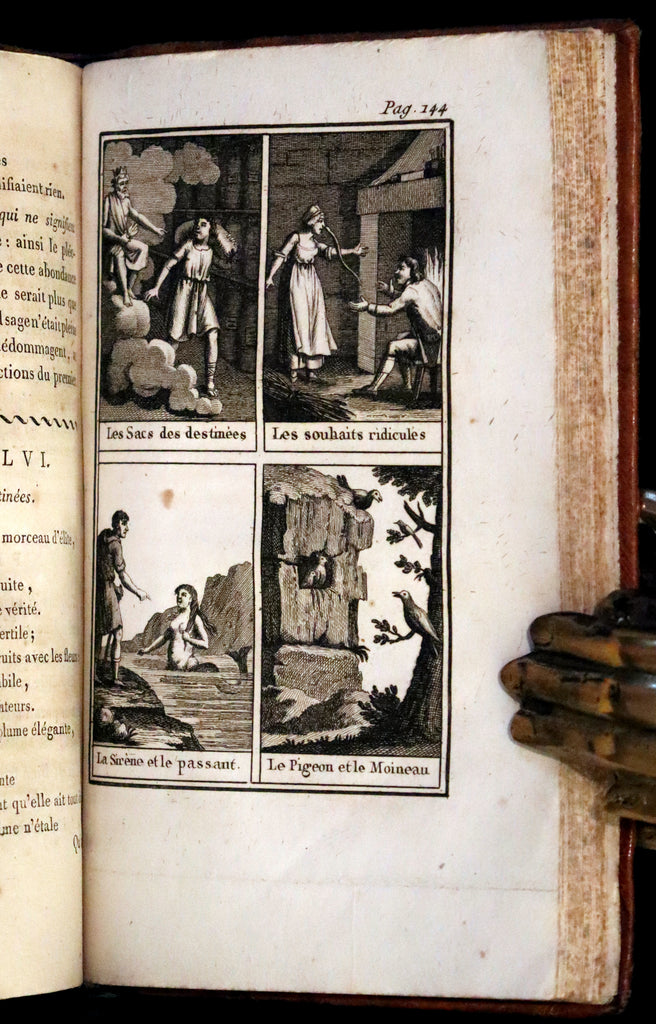 ifiaient rien.
qui ne signifient
: ainsi le
cette abondance
e serait plus que
sage n'était
édommagent,
ctions du premier
LVI.
tinées.
morceau d'élite,
uite,
vérité.
ertile;
ruits avec les fleurs
bile,
ateurs.
plume élégante,
nte
t qu'elle ait tout
me n'étale
Pag. 144
Les Sacs des destinées
Les souhaits ridicules
La Sirène et le passant.
Le Pigeon et le Moineau